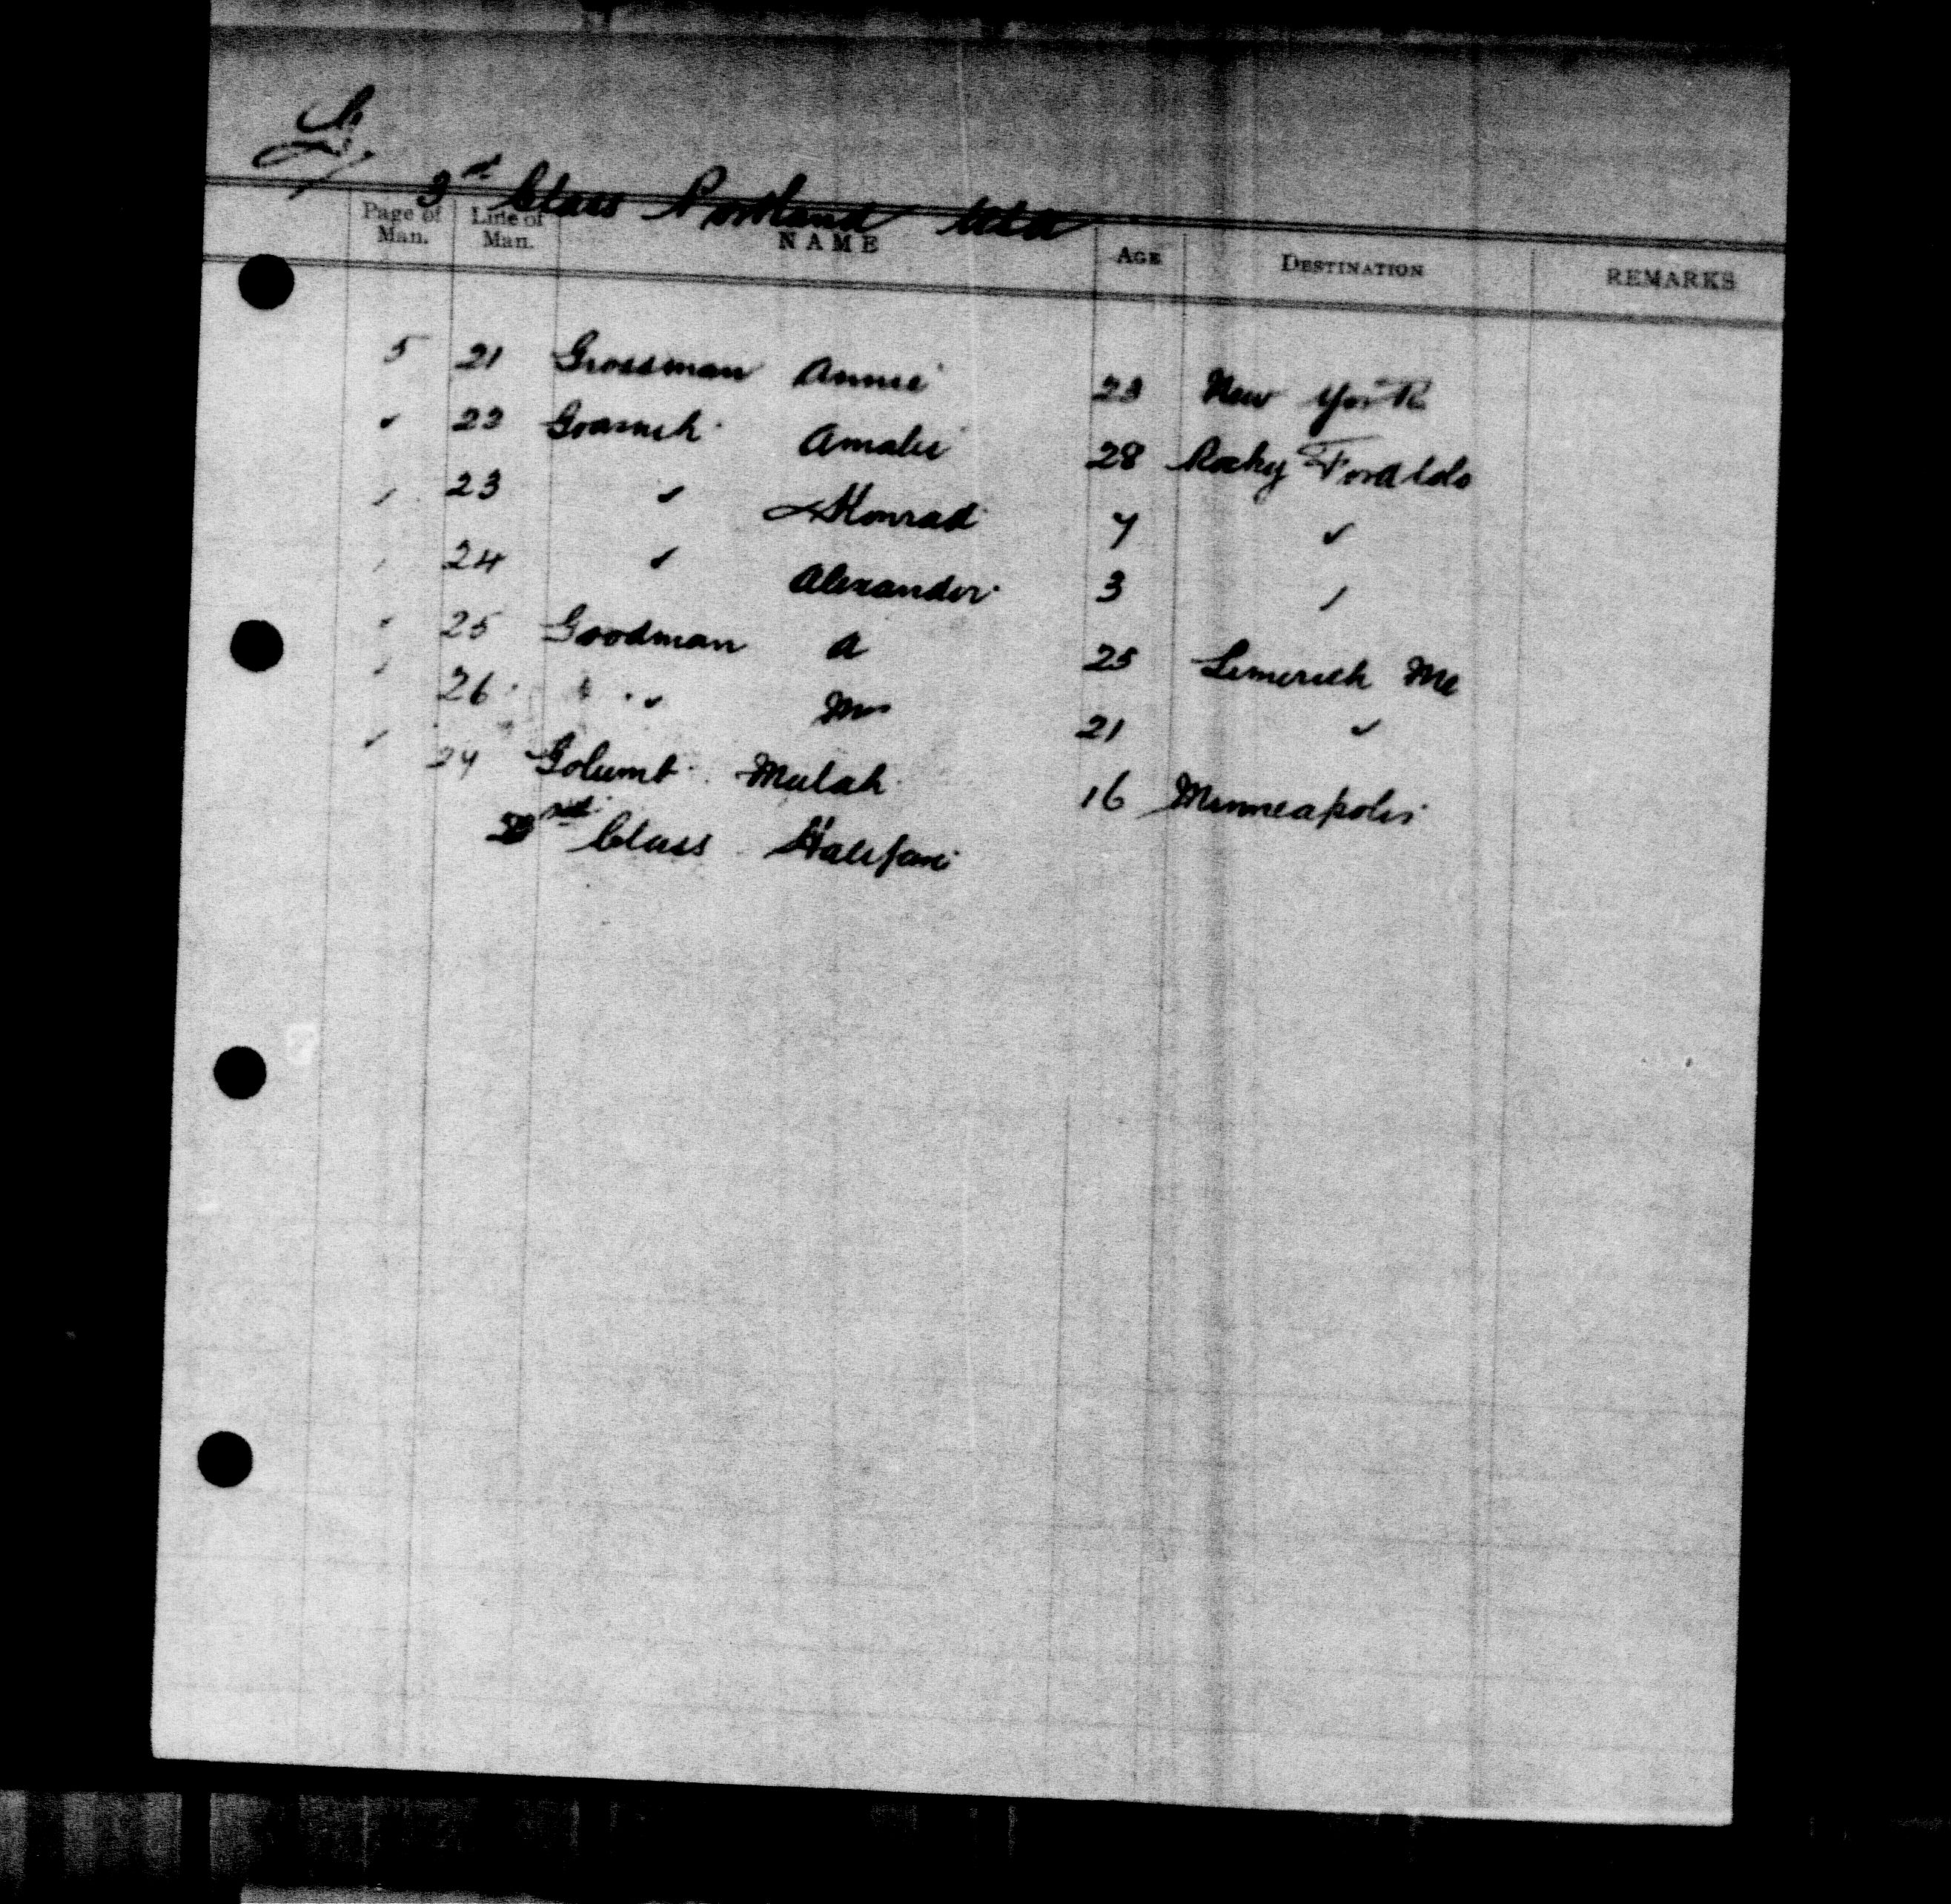 G
3rd Class Portland USA
Page of Man. Line of Man. NAME AGE DESTINATION REMARKS
5 21 Grossman Annie 23 New York
✓ 22 Amalie 28 Rocky Ford Colo
✓ 23 ✓ Konrad 7 ✓
✓ 24 ✓ Alexander 3 ✓
✓ 25 Goodman A 25 Limerick Me
✓ 26 ✓ Mrs 21 ✓
✓ 27 Golumb 16 Minneapolis
Class Halifax